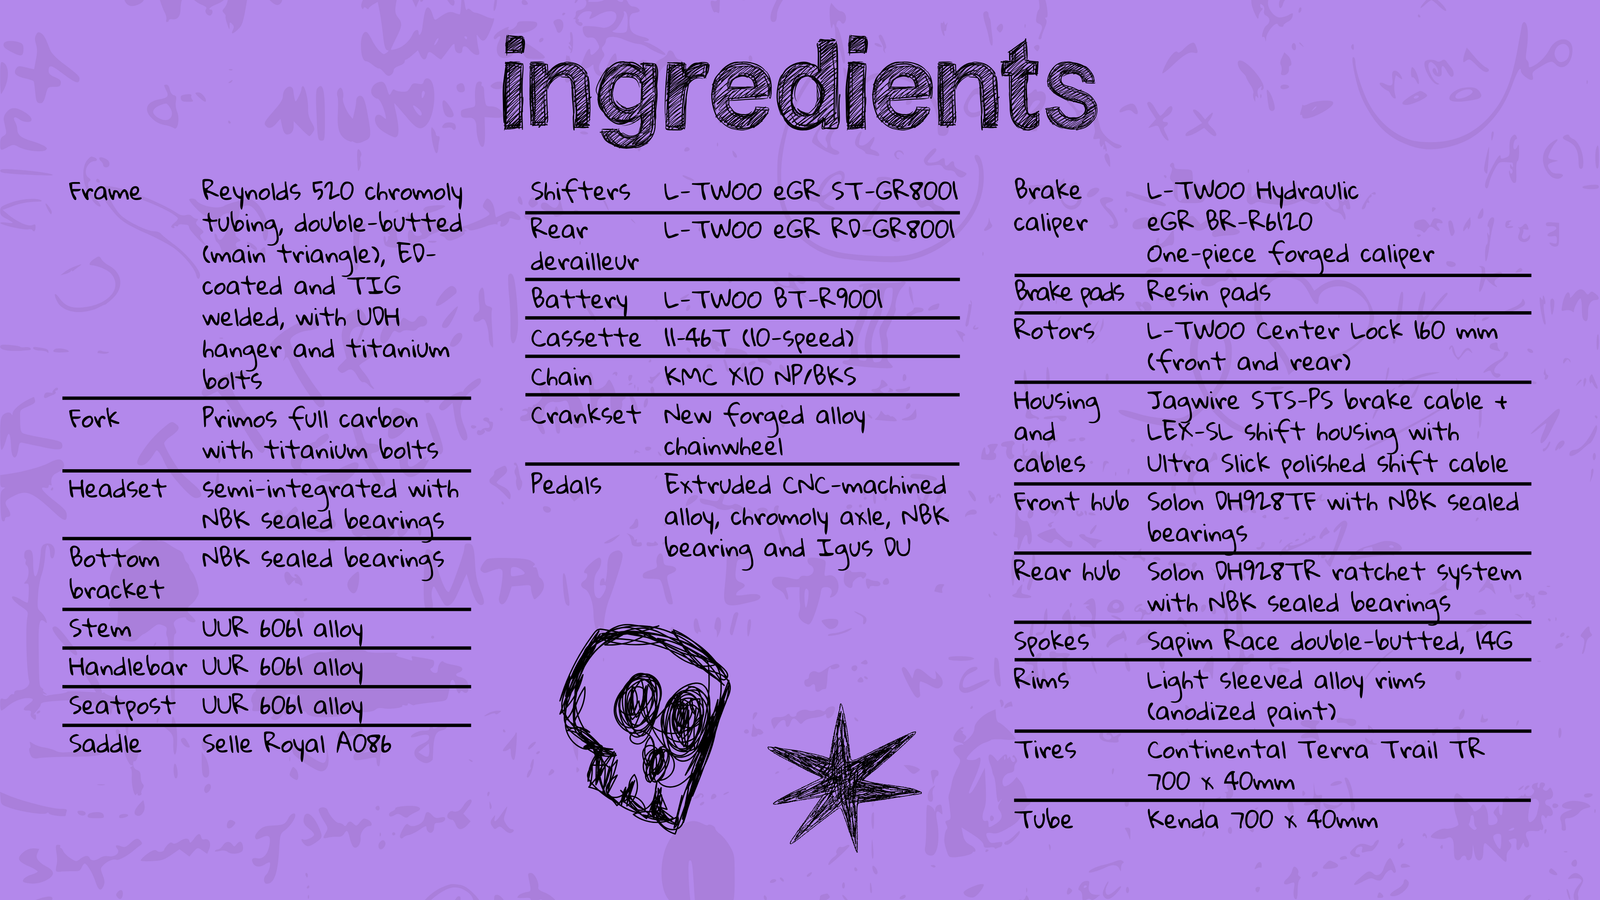 ingredients
Frame Reynolds 520 chromoly
tubing, double-butted
(main triangle), ED-
coated and TIG
welded, with UDH
hanger and titanium
bolts
Fork Primos full carbon
with titanium bolts
Headset semi-integrated with
NBK sealed bearings
Bottom NBK sealed bearings
bracket
Stem UUR 6061 alloy
Handlebar UUR 6061 alloy
Seatpost UUR 6061 alloy
Saddle Selle Royal A086
Shifters L-TWOO eGR ST-GR8001
Rear L-TWOO eGR RD-GR8001
derailleur
Battery L-TWOO BT-R9001
Cassette 11-46T (10-speed)
Chain KMC X10 NP/BKS
Crankset New forged alloy
chainwheel
Pedals Extruded CNC-machined
alloy, chromoly axle, NBK
bearing and Igus DU
Brake L-TWOO Hydraulic
caliper eGR BR-R6120
One-piece forged caliper
Brake pads Resin pads
Rotors L-TWOO Center Lock 160 mm
(front and rear)
Housing Jagwire STS-PS brake cable +
and LEX-SL shift housing with
cables Ultra Slick polished shift cable
Front hub Solon DH928TF with NBK sealed
bearings
Rear hub Solon DH928TR ratchet system
with NBK sealed bearings
Spokes Sapim Race double-butted, 14G
Rims Light sleeved alloy rims
(anodized paint)
Tires Continental Terra Trail TR
700 x 40mm
Tube Kenda 700 x 40mm